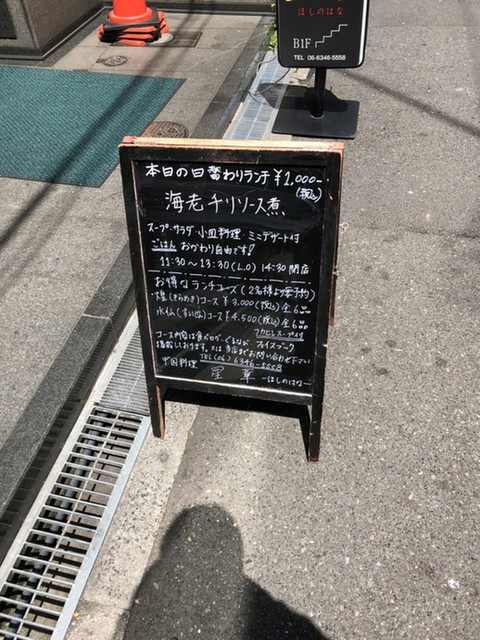 ほしのはな
B1F
TEL 06-6346-5558
本日の日替わりランチ ¥1,000-
(税込)
海老チリソース煮
スープ・サラダ・小皿料理・ミニデザート付
ごはん おかわり自由です!!
11:30〜13:30(L.O) 14:30閉店
お得なランチコース(2名様より要予約)
・煌(きらめき)コース ¥3,000(税込)全6品
・水仙(すいせん)コース ¥4,500(税込)全6品
フカヒレスープ付
コース内容は食べログ、ぐるなび、フェイスブック
掲載しております。又は当店までお問い合わせ下さい
TEL(06)6346-5558
中国料理 星華 -ほしのはな-